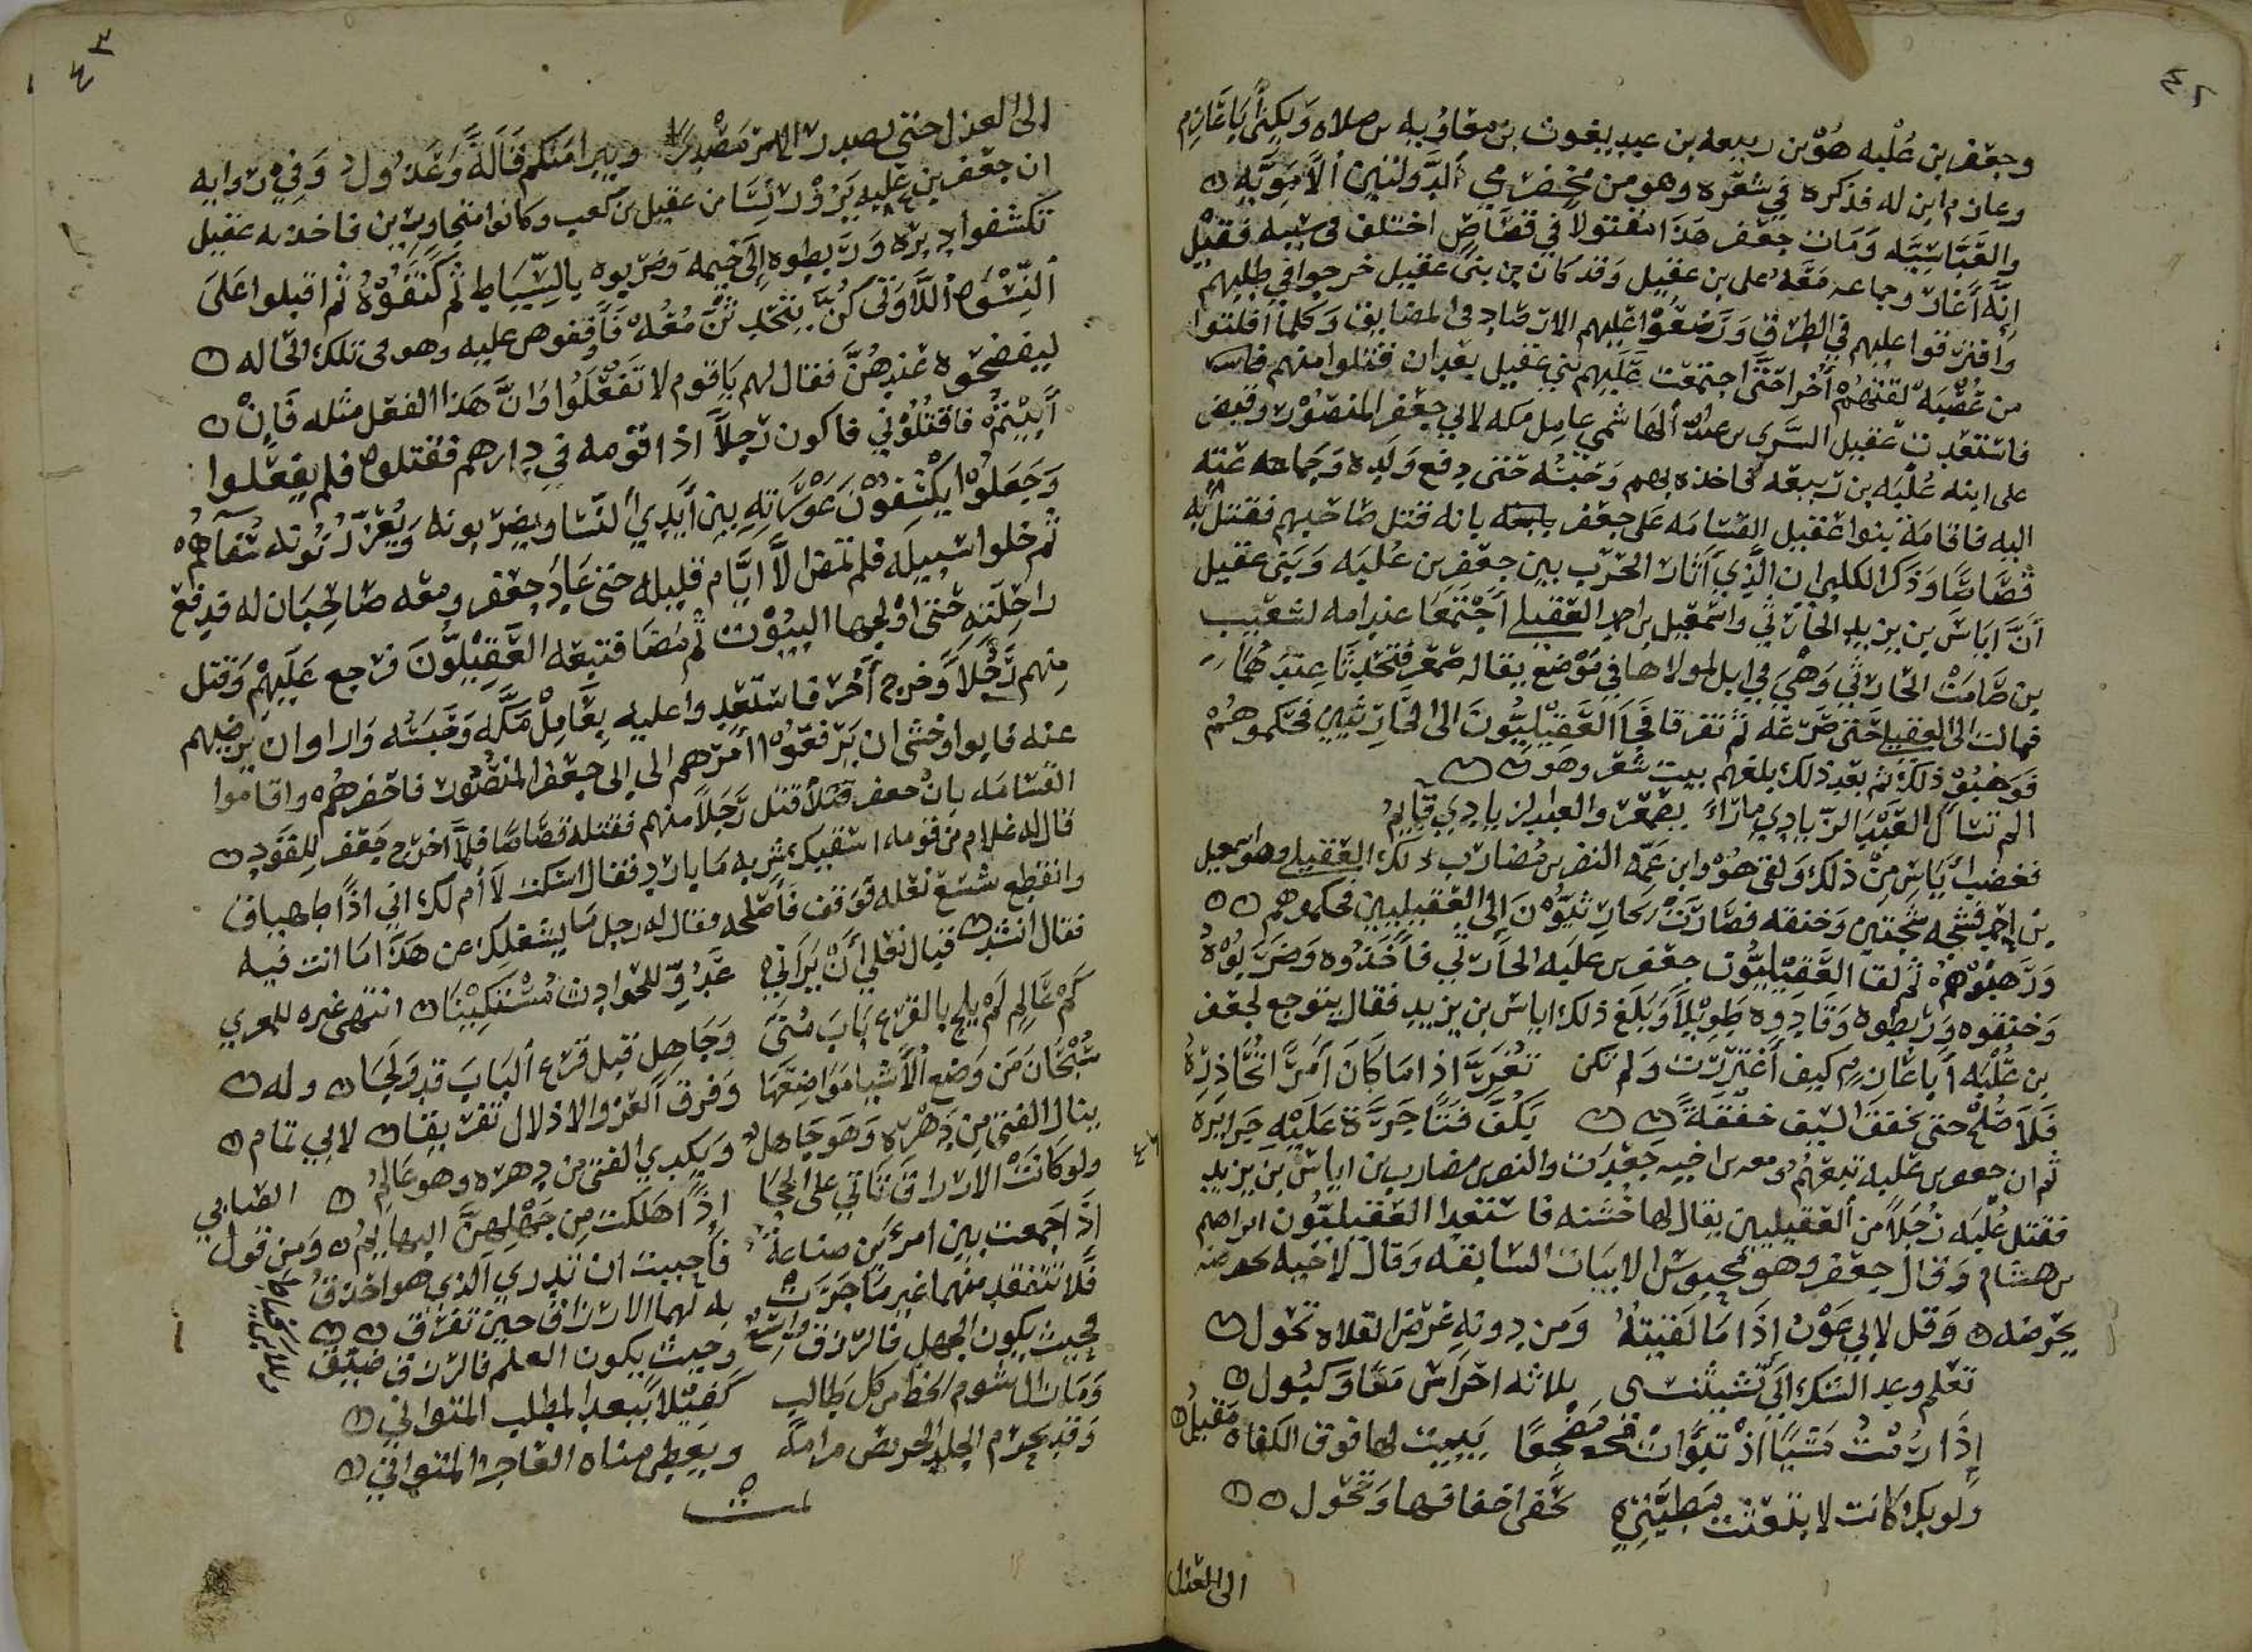 ٤٢
وجعفر بن عُلْبه هُوَ بن ربيعه بن عبد يغوث بن معاويه بن صلاه وَيكنى أبَا عَارِم
وعارم ابن له قد ذكره في شعره وهو من مخضرمي الدَّولتين الأمَويَّه
والعَبَّاسِيَّه وَمَات جعفر هَذَا مقتولا في قصَاصٍ اختلف في سببه فقيل
إنَّه أغَار وجماعه مَعَه على بن عقيل وَقد كان من بني عقيل خرجوا في طلبهم
وافترقوا عليهم في الطرق وَوَضَعُوا عليهم الارصاد في المضايق وَكلما أفلتوا
من عُصْبَه لقتهُم أخرا حَتَّى اجتمعَت عَلَيهم بني عقيل بعد ان قتلوا منهم
فاستعدت عقيل السَّري بن عبدالله الهَاشمي عامل مكه لابي جعفر المنصُور وقبض
على ابنه عُلْبَه بن رَبيعَه فاخذه بهم وَحَبسَه حَتى دفع وَلَده وَجماعه عنه
اليه فاقامَة بَنوا عقيل القسَامَه عَلى جعفر بانه قتل صَاحبهم فقتل به
قصَاصًا وَذكر الكلبي ان الَّذِي أثار الحَرب بين جعفر بن عُلبَه وَبَني عقيل
أنَّ ايَاسَ بن يزيد الحَارثي واسمَعيل بن احمر العقيلي اجْتمَعَا عند امه لشعَيب
بن صَامت الحَارثي وَهْيَ في ابل لمولاها في مَوْضع يقال له صمعر فتحَدثَا عندهَا
فمالت الى العقيلي حَتى صَرعَه ثم تفرقا فجَا العَقيْليُّونَ الى الحَارِثيين فحكموهُم
فَوَهَبُوْ ذلك ثم بعد ذلك بلغهم بيت شعر وهو
الم تسْأل العَبْد الزِّيادي مَا رَاءَ بصَمعَر والعبد الزيادي قايمُ
فغضب ايَاس من ذلك وَلقى هُوْ وابن عَمِّه النضر بن مُضارب ذلك العقيلي وهو اسمعيل
بن احمر فشجه شجّتين وَخنقه فصَارَت الحَارِثيُّوْنَ الى العقيليين فحكموهم
وَرَهبُوْهُمْ ثم لقا العَقيْليُّون جعفر بن عُلبَه الحَارثي فأَخَذُوه وَضَرَبوْهُ
وَخنقوه وَرَبطوه وَقَادوه طَويْلاً وَبَلَغ ذلك اياس بن يزيد فقال يتوجع لجعفر
بن عُلْبَه أبَا عَارِم كيف اغتررت وَلم تكن تُغَرَّ اذا مَا كَانَ أمرٌ تُحَاذِرُهُ
فَلاَ صُلحَ حتى يخفق السَّيف خفقَةً يَكُفّ فتًا جَرَّت عَلَيْه جَرَايرُه
ثم ان جعفر بن علبه تبعهُم وَمعه بن اخيه جَعدَت والنضر بن مضارب بن اياس بن يزيد
فقتل عُلْبَه رَجُلاً من العَقيليين يقال لها خشنه فاستعدا العَقيليُّون ابراهيم
بن هشام وَقال جعفر وهو محبوس الابيات السَّابقه وَقال لاخيه
يحرضه وَقل لابي عَوْن اذا مَا لَقيتهُ وَمن دونه عَرْض الفلاه تحول
تعَلم وعد الشك اني ثلاثه احراس مَعًا وَكبُول
إذَا رُمْتُ مَشيًا اذْ تبوَّاتْ مَضجعًا يبيت لها فوق الكعاب مَقيلُ
ولو بك كانت لابتعثت مَطِيَّتيْ يحفى اخفافها وَتجول
الى العَدل
٤٣
الى العدل حتى يصدر الامر مَصْدَرًا ويبرا منكم قالَةٌ وَعَدُولُ وَفي روايه
ان جعفر بن علبه يَزُوْر نسَا من عقيل بن كعب وكانوا متجاورين فاخذه عقيل
تكشفوا دبره وَرَبطوه الَى خيمه وَضربوه بالسِّيَاط ثم كَتَّفُوْهُ ثم اقبلوا عَلىَ
النِّسْوَه اللَّاوَتى كنَّ يتحَدِثنَّ مَعُه فَأَوْقفوه عليه وهو في تلك الحَاله
ليفضحُوه عندهُنَّ فقال لهم يَا قوم لا تَفْعَلُوا وانَّ هَذا الفعل مثله فَإن
أَبَيْتمُ فاقتُلُوْني فاكون رَجُلاً اذا قومه في دارهم فقتلوه فلم يفعَلوا
وَجَعَلُوا يكْشِفوْن عَوْرَاتِه بين أَيدي النَّسَا ويَضربونه وَيُغرُوْنه سُفَهاهُم
ثم خلوا سَبيلَه فلم تمض الَّا ايَّام قليله حتى عَاد جعفر ومعه صَاحِبَان له فدفع
راحلته حَتى اوْلجها البيُوْت ثم مَضَا فتبعَه العَقِيْليُّونَ فرجع عَلَيْهِمْ وَقتل
منهم رَجُلاً وَجَرح أخر فاستعدوا عليه بِعَامِل مَكَّه وَحَبَسَه وَارادوا ان يرضيهم
عنه فابوا وخشى ان يرفعُوا امرهم الى ابي جعفر المنصُور فاحضرهُم واقاموا
القسَامَه بان جعفر قتل رَجُلاً منهم فقتله قصَاصًا فلمَّا اخرج جَعفر للقوَدِ
قال له غلام من قومه اسقيك شربه مَا بارد فقال اسكت لا أم لك اني اذًا مهياف
وانقطع شسع نعله فوَقف فاصلحَه فقال له رجل ما يشغلك عن هَذا مَا انت فيه
فقال انشد قبال نعلي أنْ يَرَاني عَدُوِّ للحَوادث مُسْتكيْنَا انتهى غيره للمعري
كَمْ عَالِمٍ لَمْ يَلِج بالقَرْع بَابَ مُنىً وَجَاهل قبل قَرع البَابَ قد وَلَجَا وله
سُبْحَان مَن وَضع الاَشيَا مَوَاضِعَهَا وَفرق العز والاذلال تفريقا لابي تمام
ينال الفتى مِن دَهْره وَهوَ جَاهلُ وَيكدي الفتى من دهره وهو عَالمُ
ولو كَانَتْ الارزاق تَاتي على الحِجَا إذًا هلكت مِن جَهْلهنَّ البهايمُ وَمن قول الصَابي
اذا جَمعت بين امرئين صناعةً فاحببت ان تدري الذي هو احذقُ
فلا تتفقد منهما غير مَا جَرَت به لهما الارزاق حين تفرَّق
فحيث يكون الجهل فالرزق وَاسعٌ وحيث يكون العلم فالرزق ضيّق
وَمَا زال شوم الحَظ من كل طالب كَفيْلاً ببعد المطلب المتوانيْ
وَقد يُحرم الجلد الحريص مرامَه ويعطى مناه العَاجز المتوانيْ
تمت